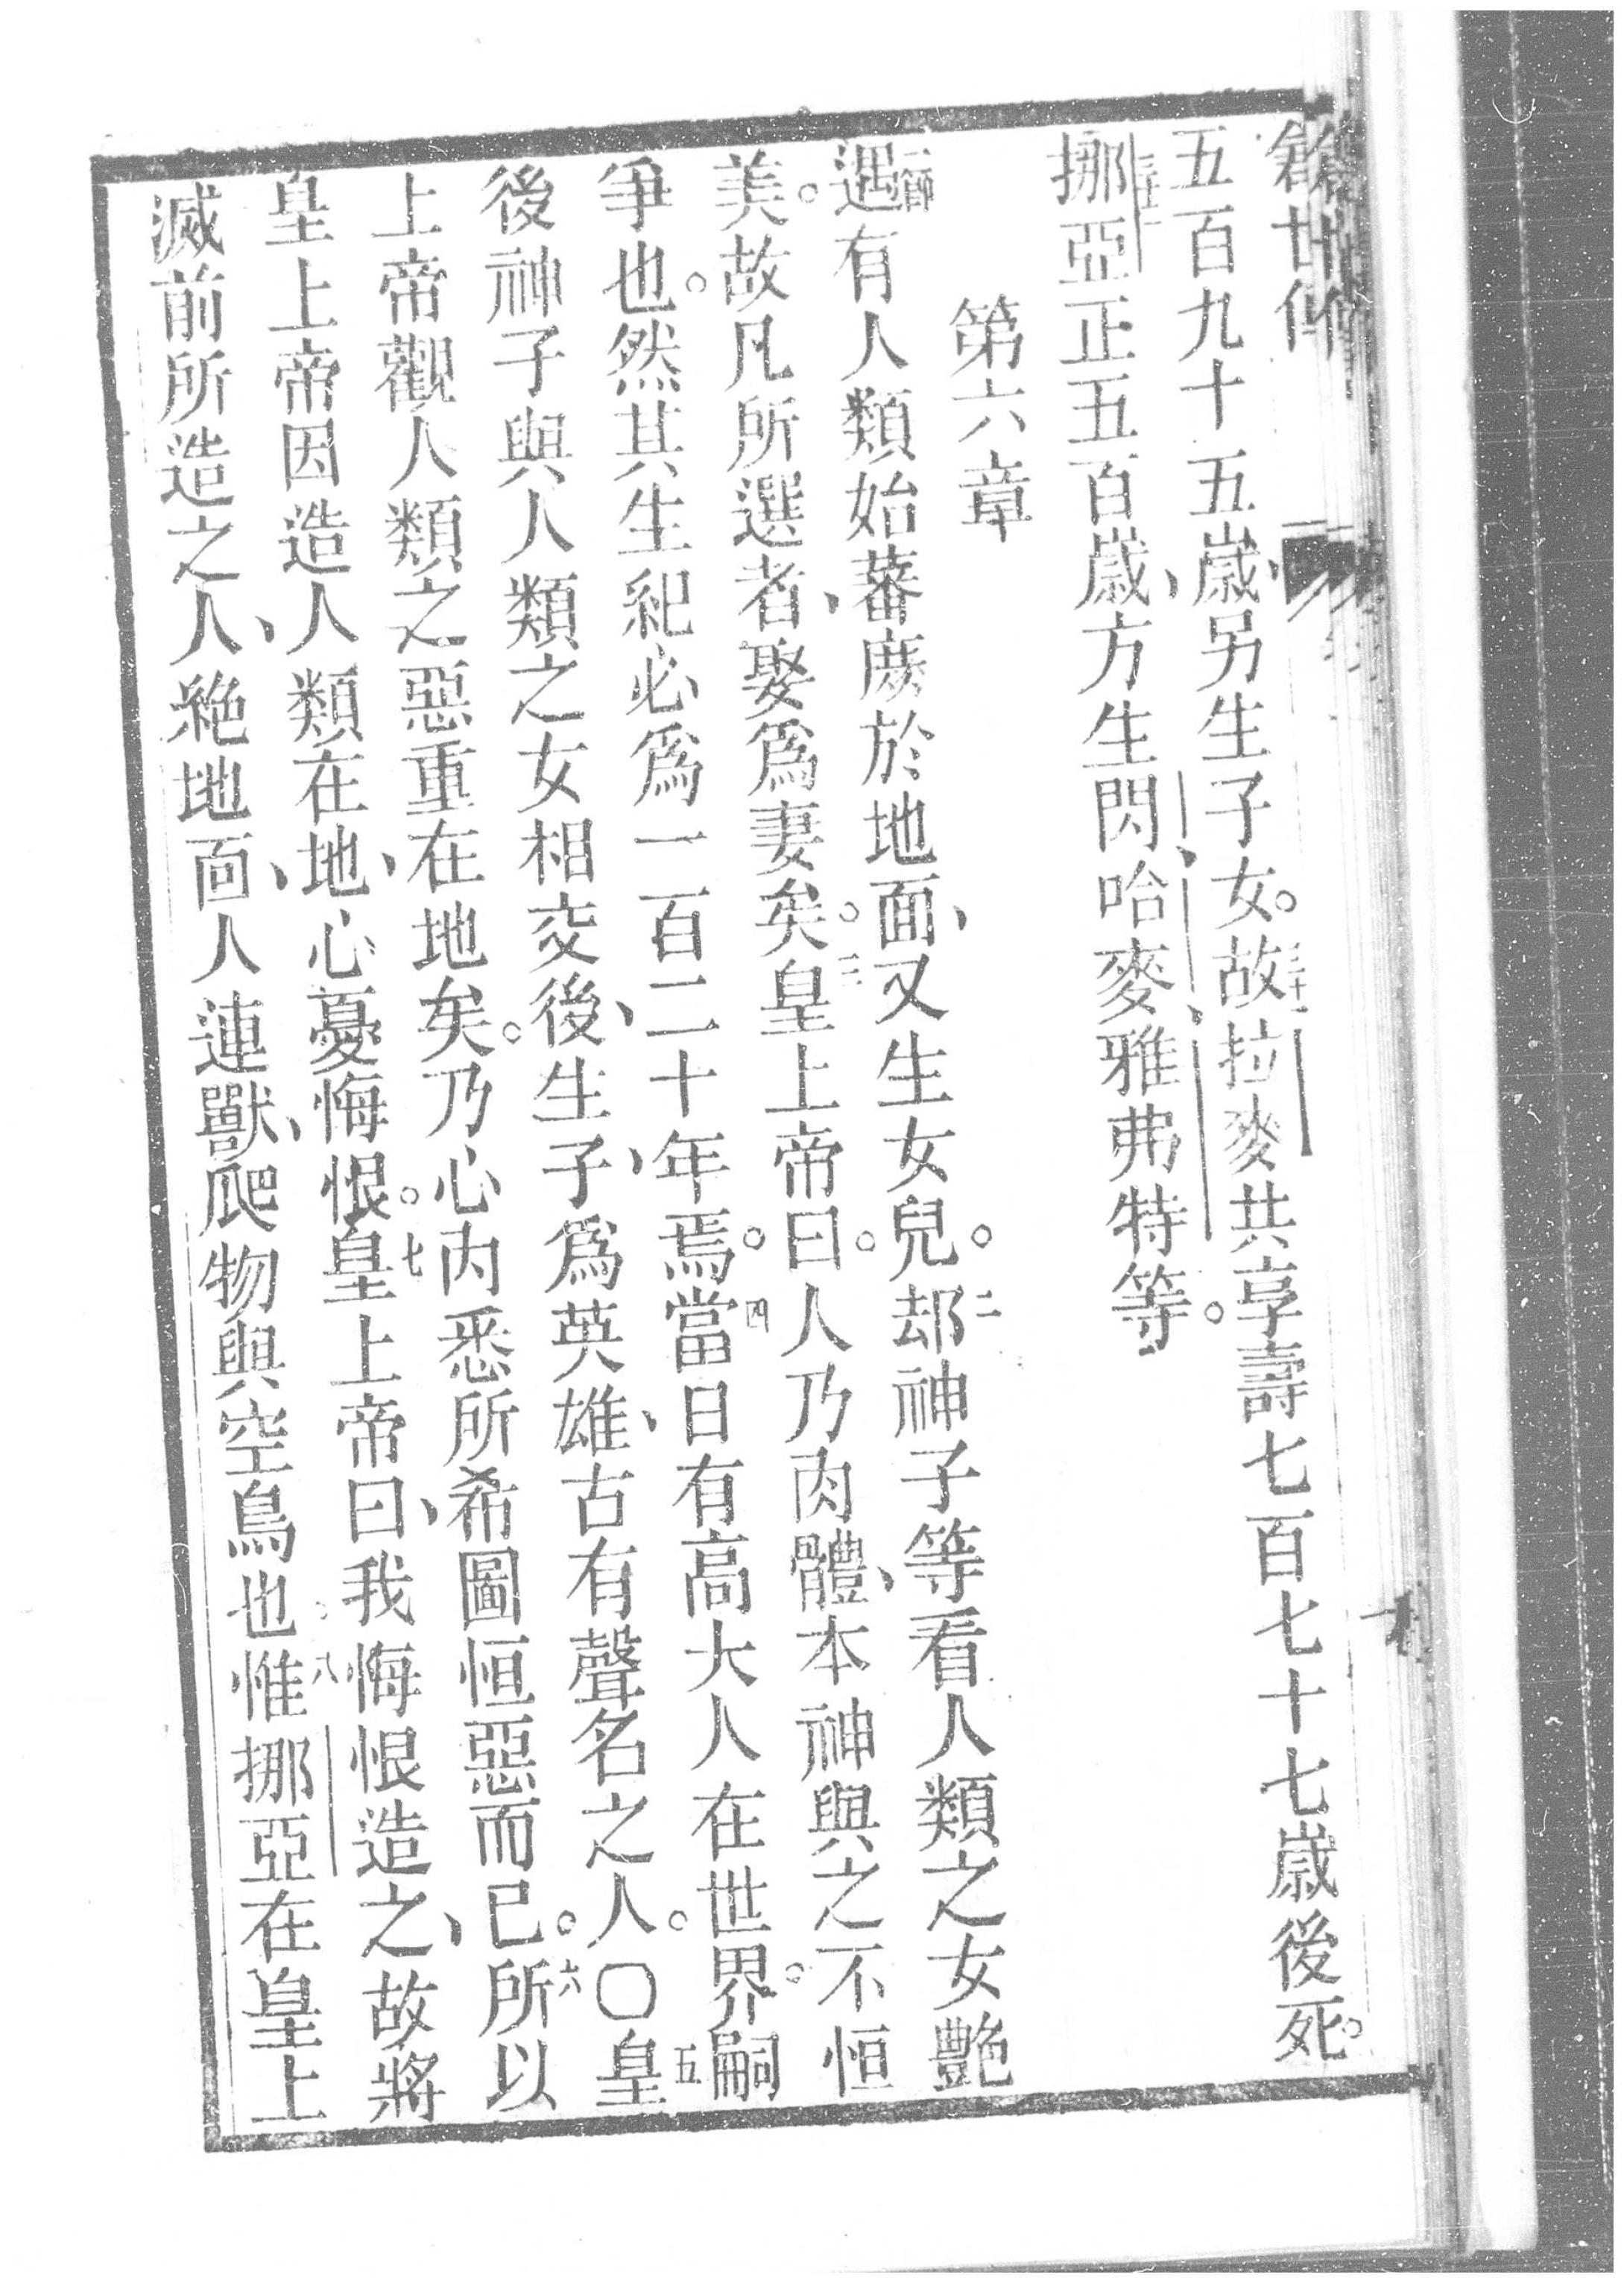 五百九十五歲、另生子女。故拉麥共享壽七百七十七歲後死。
挪亞正五百歲、方生閃、哈麥、雅弗特等。
第六章
遇有人類始蕃庶於地面、又生女兒。二却神子等看人類之女艷
美。故凡所選者、娶爲妻矣。三皇上帝曰。人乃肉體、本神與之不恒
爭也。然其生紀必爲一百二十年焉。四當日有高大人在世界。嗣
後神子與人類之女相交後、生子、爲英雄、古有聲名之人。〇五皇
上帝觀人類之惡重在地矣。乃心內悉所希圖恒惡而已。六所以
皇上帝因造人類在地、心憂悔恨。七皇上帝曰、我悔恨造之、故將
滅前所造之人、絕地面、人連獸、爬物與空鳥也。八惟挪亞在皇上